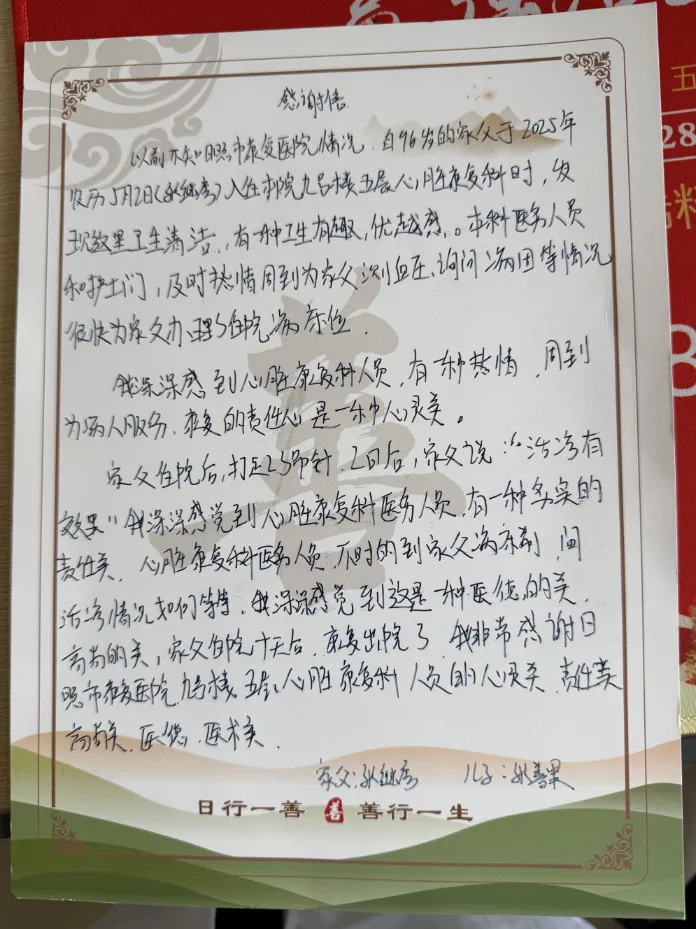 感谢信
以前不知日照市康复医院情况，自96岁的家父于2025年
农历5月2日(永继孝)入住本院九号楼五层心脏康复科时，发
现这里卫生清洁，有一种卫生有趣，优越感。本科医务人员
和护士们，及时热情周到为家父测血压、询问病因等情况
很快为家父办理了住院病床位．
我深深感到心脏康复科人员，有一种热情，周到
为病人服务、康复的责任心是一种心灵美。
家父住院后，打上23号针，2日后，家父说："治疗有
效果"我深深感觉到心脏康复科医务人员，有一种务实的
责任美，心脏康复科医务人员，不时的到家父病床前，问
治疗情况如何等等，我深深感觉到这是一种医德的美，
高尚的美，家父住院十天后，康复出院了，我非常感谢日
照市康复医院九号楼五层心脏康复科人员的心灵美，责任美
高尚美、医德、医术美．
家父：永继孝 儿子：永善果
日行一善 善 善行一生
善
五
28
8